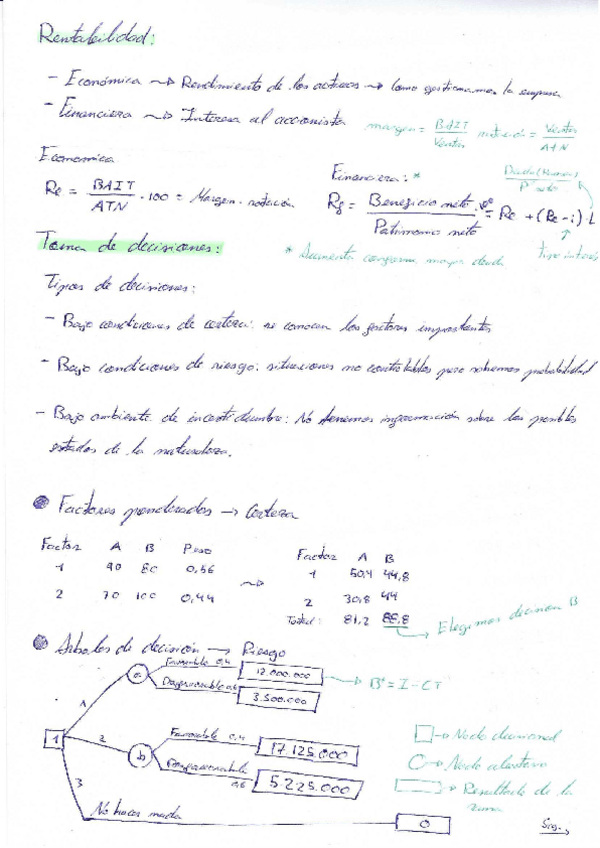 Rentabilidad:
- Económica → Rendimiento de los activos → como gestionamos la empresa
- Financiera → Interesa al accionista margen = BAIT / Ventas rotación = Ventas / ATN
Economica
Re = BAIT / ATN · 100 = Margen · rotación
Financiera: *
Rf = Beneficio neto / Patrimonio neto = Re + (Re - i) · L
Toma de decisiones:
* Aumenta conforme mayor deuda
tipo interés
Tipos de decisiones:
- Bajo condiciones de certeza: se conocen los factores importantes
- Bajo condiciones de riesgo: situaciones no controlables pero sabemos probabilidad
- Bajo ambiente de incertidumbre: No tenemos información sobre los posibles
estados de la naturaleza.
Factores ponderados → Certeza
Factor A B Peso
1 90 80 0,56
2 70 100 0,44
Factor A B
1 50,4 44,8
2 30,8 44
Total: 81,2 88,8 → Elegimos decision B
Arboles de decisión → Riesgo
1
1 a Favorable 0,4 12.000.000 → Bº = I - CT
Desfavorable 0,6 3.500.000
2 b Favorable 0,4 17.125.000
Desfavorable 0,6 5.225.000
3 No hacer nada 0
→ Nodo decisional
→ Nodo aleatorio
→ Resultado de la
rama
Sig.